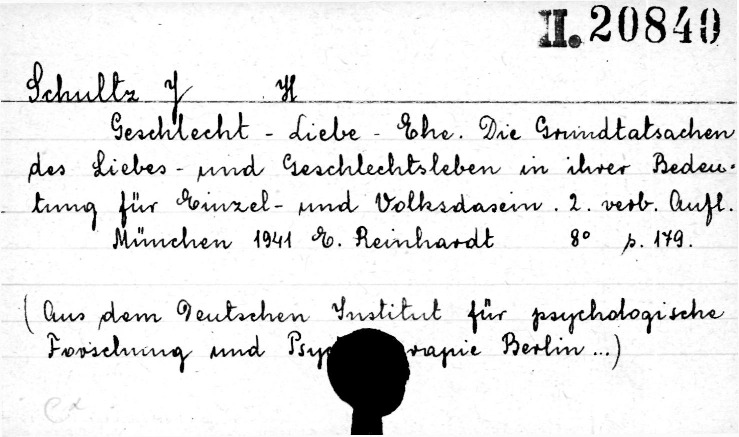 II. 20840
Schultz J H
Geschlecht - Liebe - Ehe. Die Grundtatsachen
des Liebes- und Geschlechtsleben in ihrer Bedeu-
tung für Einzel- und Volksdasein. 2. verb. Aufl.
München 1941 E. Reinhardt 8° p. 179.
(Aus dem Deutschen Institut für psychologische
Forschung und Psy rapie Berlin ...)